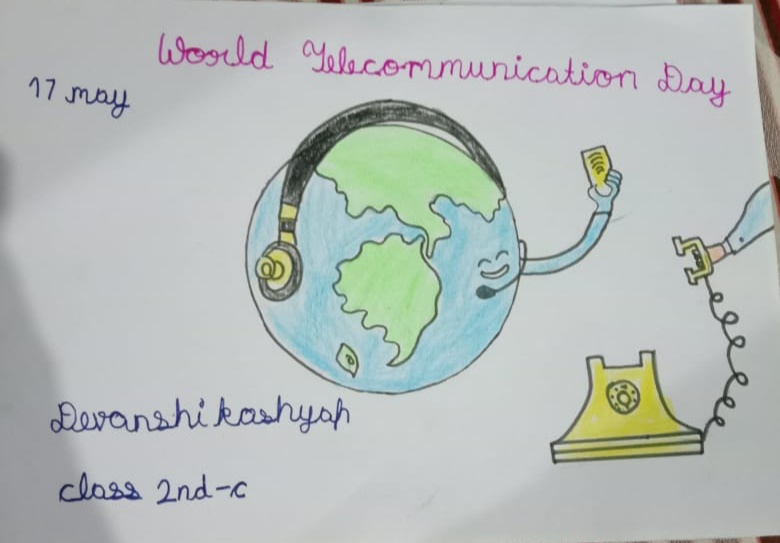 World Telecommunication Day
17 may
Devanshi kashyap
class 2nd-c